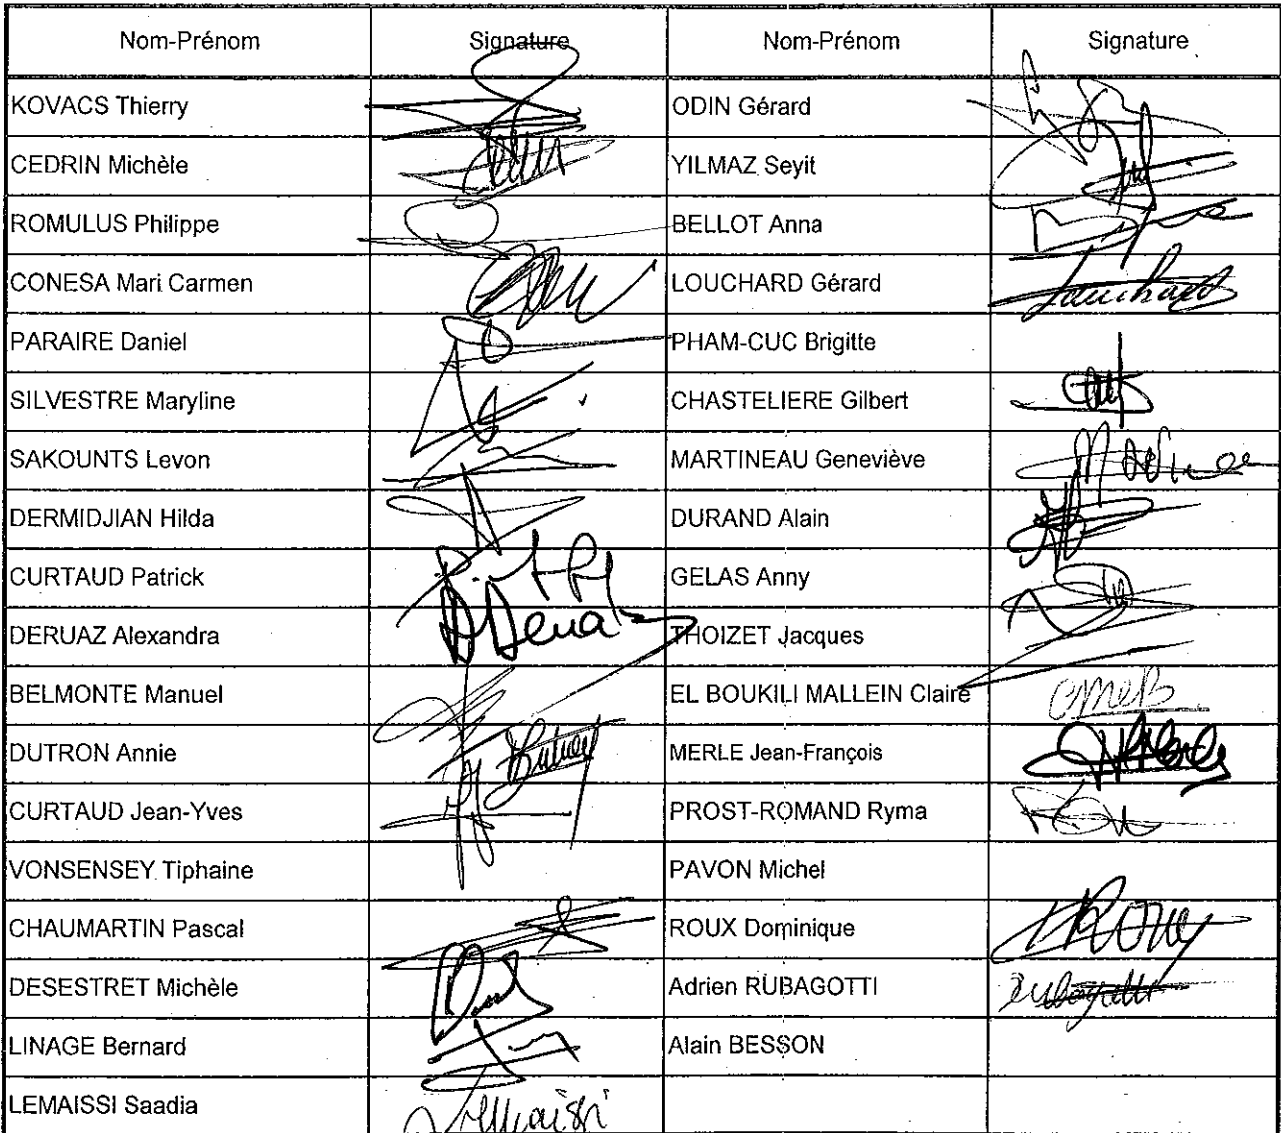 Nom-Prénom Signature Nom-Prénom Signature
KOVACS Thierry ODIN Gérard
CEDRIN Michèle YILMAZ Seyit
ROMULUS Philippe BELLOT Anna
CONESA Mari Carmen LOUCHARD Gérard Louchard
PARAIRE Daniel PHAM-CUC Brigitte
SILVESTRE Maryline CHASTELIERE Gilbert
SAKOUNTS Levon MARTINEAU Geneviève
DERMIDJIAN Hilda DURAND Alain
CURTAUD Patrick GELAS Anny
DERUAZ Alexandra THOIZET Jacques
BELMONTE Manuel EL BOUKILI MALLEIN Claire
DUTRON Annie MERLE Jean-François
CURTAUD Jean-Yves PROST-ROMAND Ryma
VONSENSEY Tiphaine PAVON Michel
CHAUMARTIN Pascal ROUX Dominique
DESESTRET Michèle Adrien RUBAGOTTI Rubagotti
LINAGE Bernard Alain BESSON
LEMAISSI Saadia Lemaissi